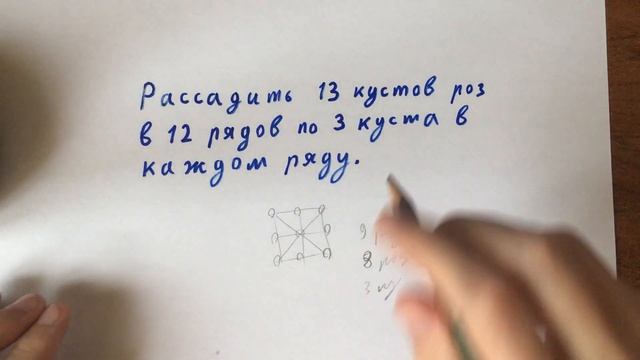 Рассадить 13 кустов роз
в 12 рядов по 3 куста в
каждом ряду.
9
8
3